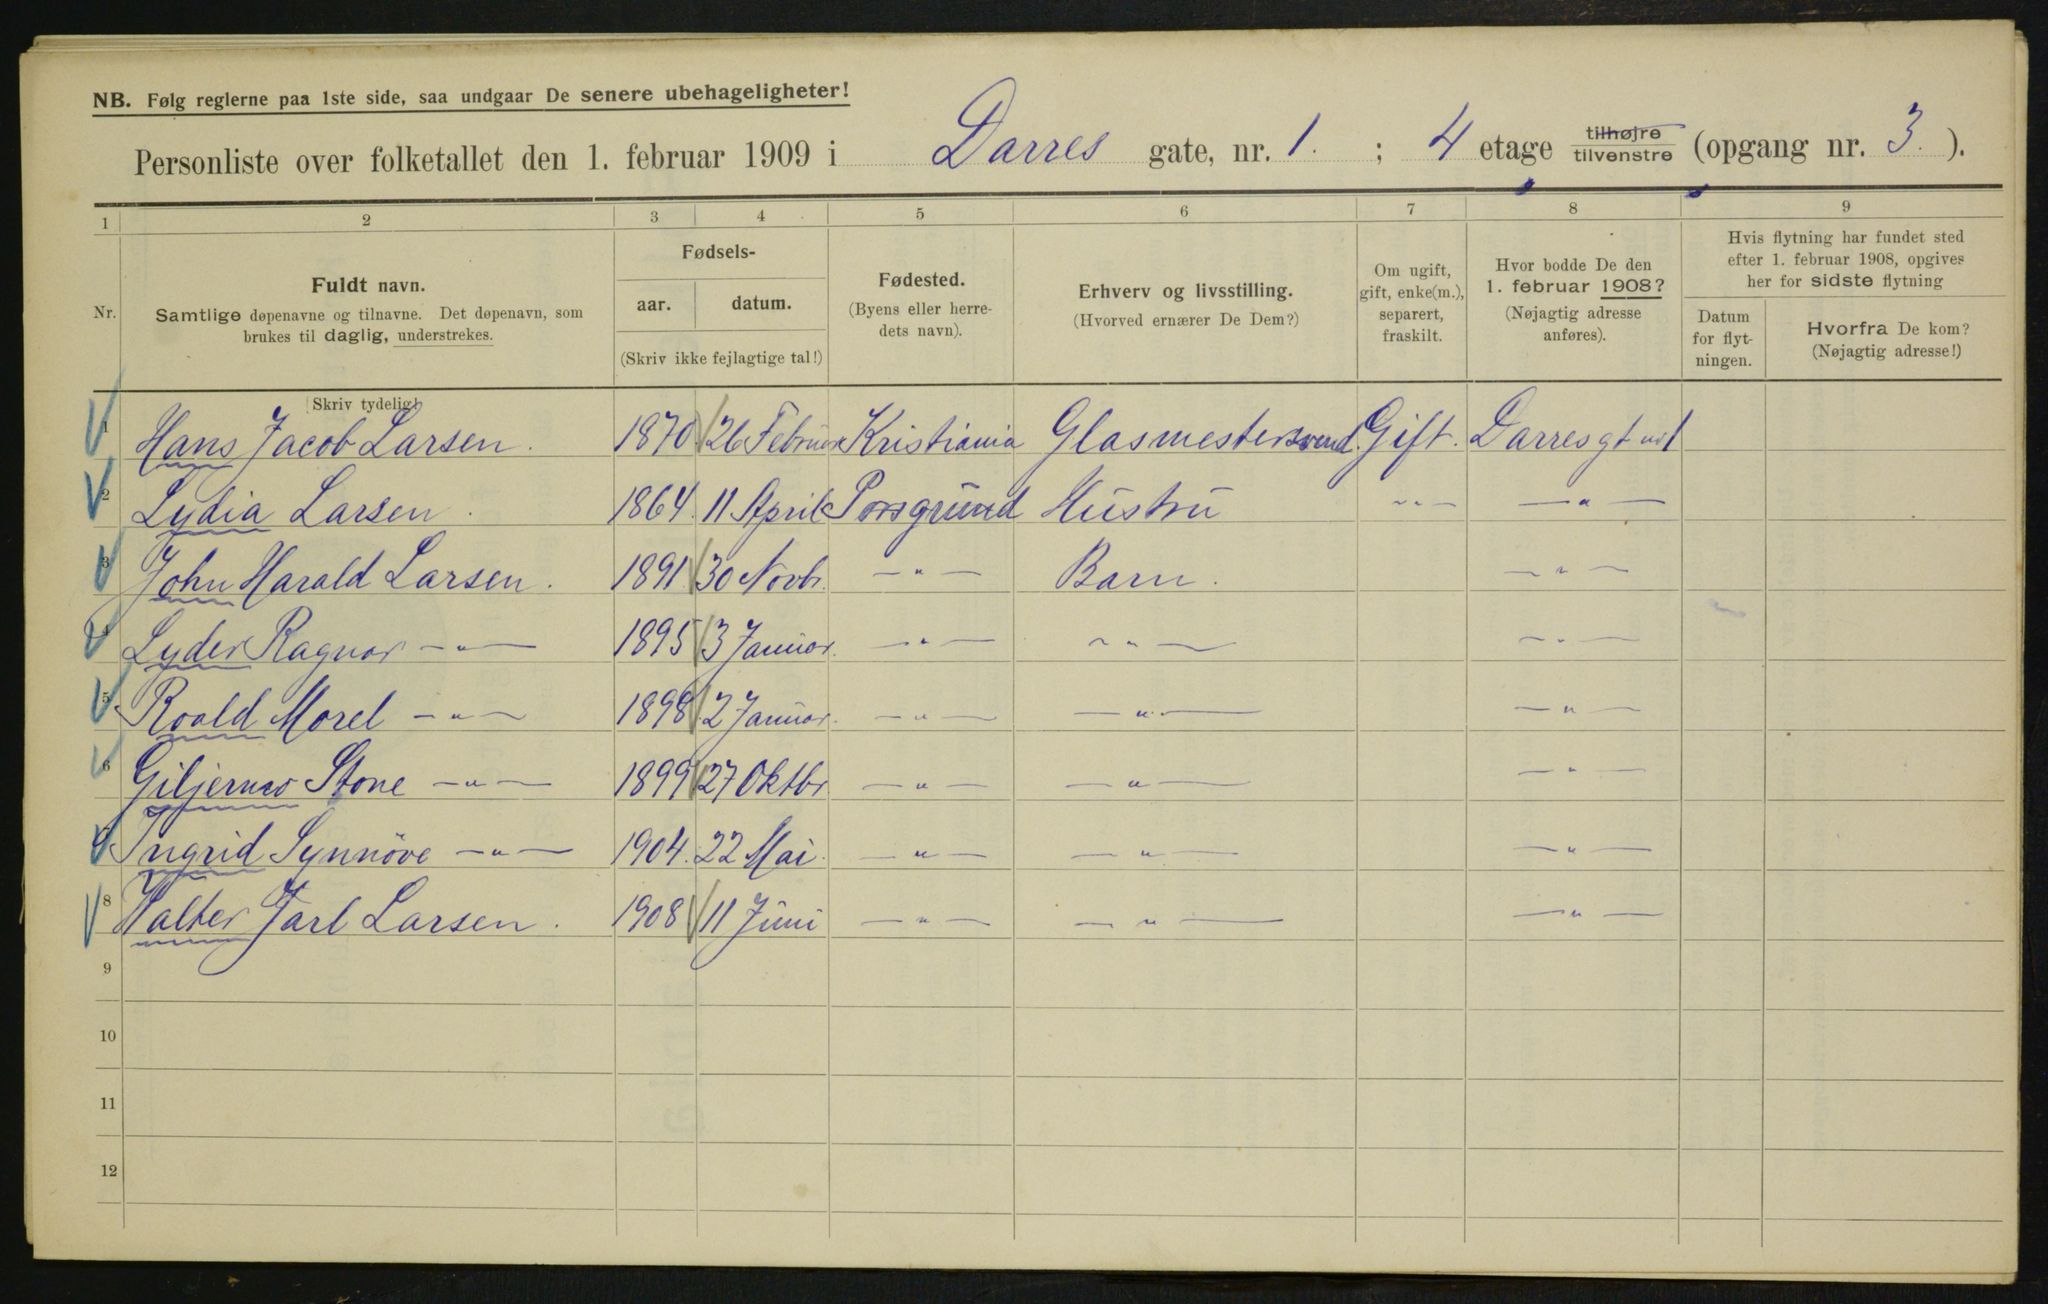 NB. Følg reglerne paa 1ste side, saa undgaar De senere ubehageligheter!
Personliste over folketallet den 1. februar 1909 i Darres gate, nr. 1. ; 4 etage tilhøjre tilvenstre (opgang nr. 3. ).
1 2 3 4 5 6 7 8 9
Nr.
Fuldt navn.
Samtlige døpenavne og tilnavne. Det døpenavn, som
brukes til daglig, understrekes.
Fødsels-
aar. datum.
(Skriv ikke fejlagtige tal!)
Fødested.
(Byens eller herre-
dets navn).
Erhverv og livsstilling.
(Hvorved ernærer De Dem?)
Om ugift,
gift, enke(m.),
separert,
fraskilt.
Hvor bodde De den
1. februar 1908?
(Nøjagtig adresse
anføres).
Hvis flytning har fundet sted
efter 1. februar 1908, opgives
her for sidste flytning
Datum
for flyt-
ningen.
Hvorfra De kom?
(Nøjagtig adresse!)
(Skriv tydelig!
1 Hans Jacob Larsen. 1870 26 Februar Kristiania Glasmestersvend. Gift. Darresgt nr 1
2 Lydia Larsen. 1864. 11 April Porsgrund Hustru -"- -"-
3 John Harald Larsen. 1891. 30 Novbr. -"- Barn. -"-
4 Lyder Ragnar -"- 1895 3 Januar. -"- -"- -"-
5 Roald Morel -"- 1898. 2 Januar. -"- -"- -"-
6 Stone -"- 1899 27 Oktbr -"- -"- -"-
7 Ingrid Synnöve -"- 1904. 22 Mai. -"- -"- -"-
8 Walter Jarl Larsen. 1908 11 Juni -"- -"- -"-
9
10
11
12